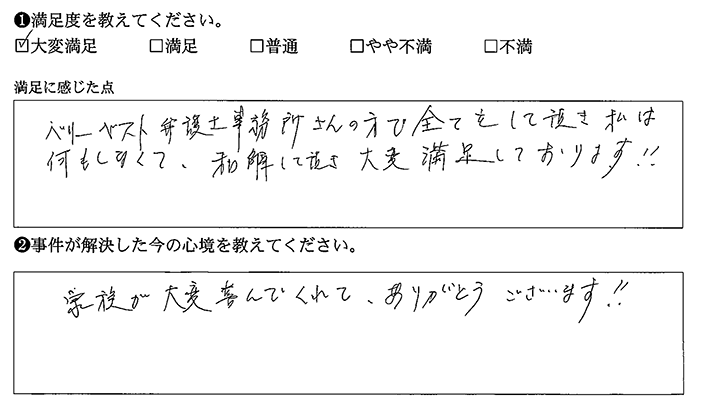 ❶満足度を教えてください。
☑大変満足 □満足 □普通 □やや不満 □不満
満足に感じた点
ベリーベスト弁護士事務所さんの方で全てをして頂き私は
何もしなくて、和解して頂き大変満足しております!!
❷事件が解決した今の心境を教えてください。
家族が大変喜んでくれて、ありがとうございます!!